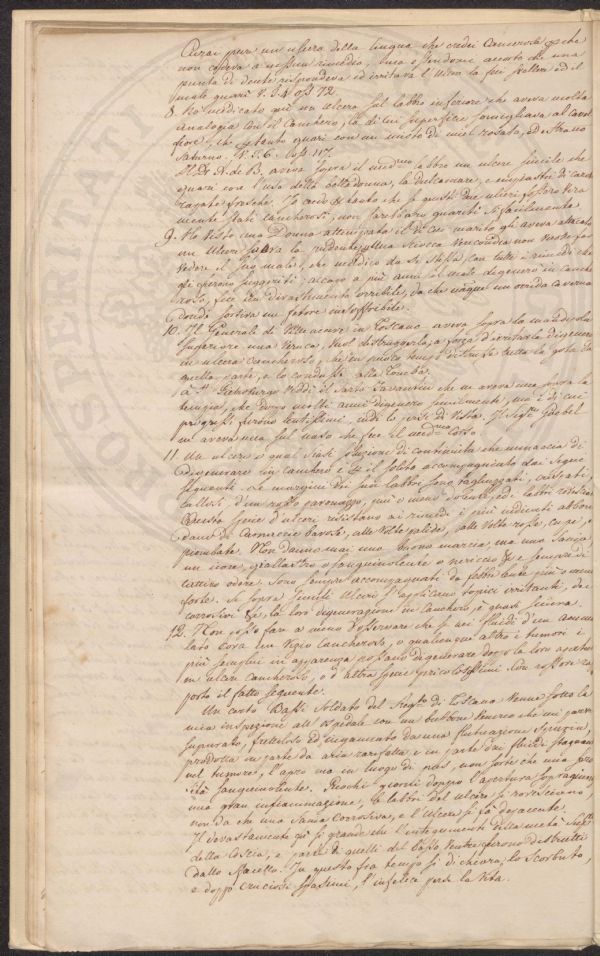 Curai pure un ulcera della lingua che credei Cancerosa p. che
non cedeva a nessun rimedio, ma essendomi accorto che una
punta di dente rispondeva ed irritava l'Ulcera la feci svellere ed il
male guarì V. S. 4 oss. 72.
8. Ho medicato quì un Ulcera sul labbro inferiore che aveva molta
analogia con il Canchero, la di cui superficie somigliava al cavol
fiore, che tanto guarì con un misto di miel rosato, ed estratto
Saturno. V. S. 6. oss. 117.
Il Dr. R. de B. aveva sopra il med.mo labbro un ulcere simile che
guarì con l'uso della belladonna, la dulcamare, e empiastri di carote
fresche. Io credo che se questi due ulceri fossero vera
mente stati cancherosi, non sarebbero guariti sì facilmente.
9. Ho visto una Donna attempata il di cui marito gli aveva attaccato
un Ulcere sopra la pudente, ella non volle far
vedere il suo male, che medicò da se stessa con tutti i rimedi che
gli furono suggeriti: a più anni il male degenerò in canche
roso, fece un devastamento orribile, da che nacque un orrida caverna
donde sortiva un fetore insoffribile.
10. Il Generale di in Toscana aveva sopra la mandibola
superiore una Veruca, distruggerla, a forza d'irritarla degenerò
in ulcera cancheroso, che in poco tempo distrusse tutta la gota da
quella parte, e lo condusse alla Tomba.
a St. Pietroburgo viddi il Sarto che ne aveva una sopra la
tempia, che dopo molti anni degenerò similmente, ma i di cui
progressi furono lentissimi, indi lo persi di vista. Il Sig.re
ne aveva una sul naso che fece il med.mo Corso.
11. Un ulcere o qual siasi soluzione di continuità che minaccia di
degenerare in canchero è il solito accompagnato dai segni
seguenti. Le margini dei suoi labbri sono raghuzzati, crispati,
callosi, d'un rosso paonazzo, più o meno dolente, ed i labbri rovesciati.
Questo gene d'ulceri resistano ai rimedi i più indicati abbon
dano di Carnacce bavose, alle volte palide, alle volte rosse, cupe, o
piombate. Non danno mai una buona marcia, ma una Sania,
un icore, giallastro o sanguinolente o nericcio & e sempre di
cattivo odore. Sono sempre accompagnati da febbri lente più o meno
forte. Se sopra simili Ulceri s'applicano topici irritanti, dei
corrosivi &, la loro degenerazione in Canchero è quasi sicura.
12. Non posso far a meno d'osservare che se nei fluidi d'un amma
lato cova un vizio cancheroso, o qualunque altro i tumori i
più semplici in apparenza possano degenerare dopo la loro apertura
in ulceri cancheroso, o d'altra specie pericolosissimi. Sia rap
porto il fatto seguente.
Un certo Bassi Soldato del Regto di Toscana venne sotto la
mia inspezione all'ospedale con un bubbone venereo che mi parve
supurato, frettoloso ed ingannato da una flutuazione
prodotta in parte da aria rarefatta, e in parte dai fluidi stagnanti
nel tumore, l'apro ma in luogo di pus, non sorte che una
sanguinolente. Pochi giorni doppo l'apertura sopragiunge
una gran infiammazione, le labbri del ulcere si rovesciano,
non dà che una Sania corrosiva, e l'Ulcera si fà
Il devastamento fu sì grande che l'integumenti della metà
della Coscia, e parte di quelli del basso Ventre furono distrutti
dallo sfacello. In questo fra tempo si dichiara, lo Scorbuto,
e doppo cruciosi spasimi, l'infelice perde la Vita.